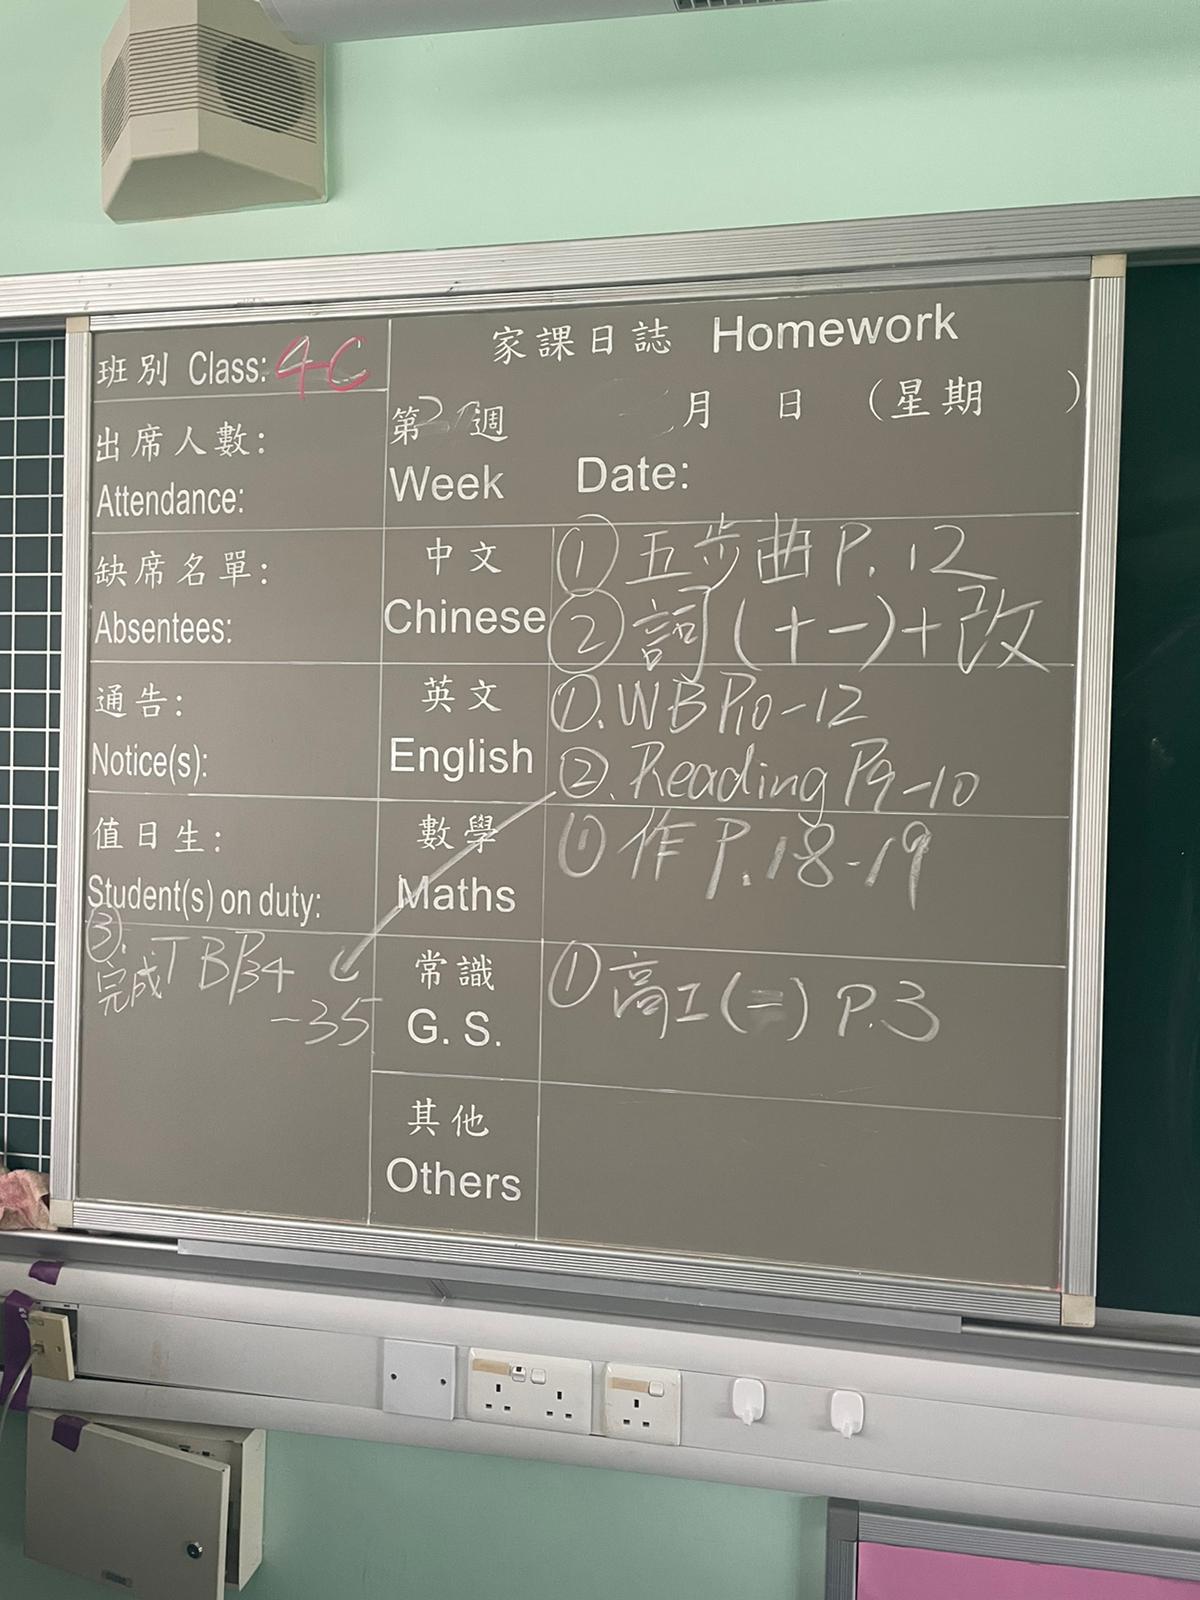 班別 Class: 4C
家課日誌 Homework
出席人數:
Attendance:
第2 週 月 日 (星期 )
Week Date:
缺席名單:
Absentees:
中文
Chinese
① 五步曲 P. 12
② 詞(十一)+改
通告:
Notice(s):
英文
English
①. WB P10-12
②. Reading P9-10
值日生:
Student(s) on duty:
數學
Maths
① 作 P. 18-19
③. 完成 TB P34
-35
常識
G. S.
① 高工(二) P.3
其他
Others